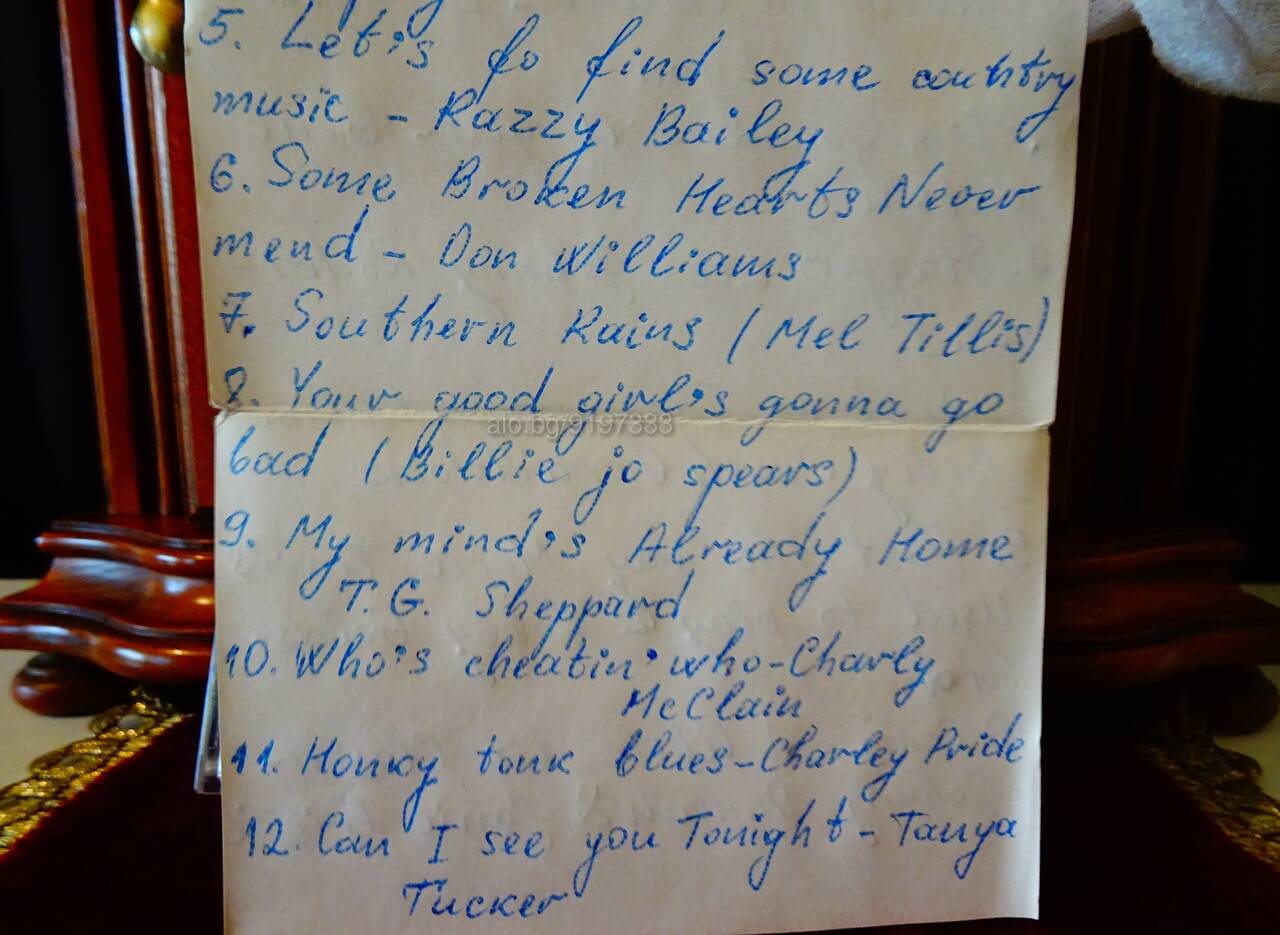 5. Let's go find some country
music - Razzy Bailey
6. Some Broken Hearts Never
mend - Don Williams
7. Southern Rains (Mel Tillis)
8. Your good girl's gonna go
alo.bg/9197333
bad (Billie jo spears)
9. My mind's Already Home
T.G. Sheppard
10. Who's cheatin' who-Charly
McClain
11. Honky tonk blues-Charley Pride
12. Can I see you Tonight - Tanya
Tucker